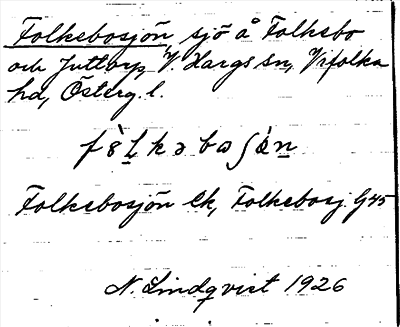 Folkebosjön sjö å Folkebo
och Juttorp, V. Hargs sn, Vifolka
hd, Österg. l.
Folkebosjön Ek, Folkebosj. G45
N. Lindqvist 1926